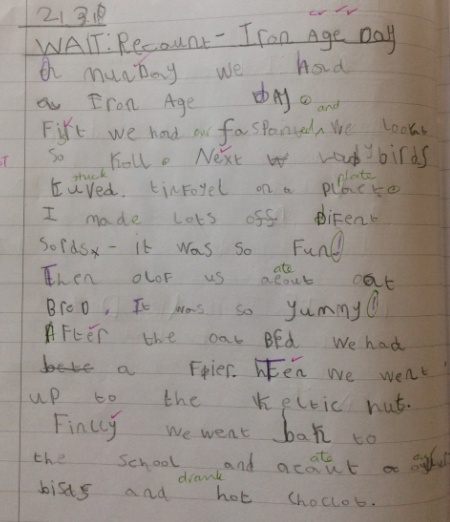 21.3.18
WALT: Recount - Iron Age Day
On munday we had
a Iron Age DAy. and
First we had our faspanted We lookt
so Kall. Next birds
stuck plate
tinfoyel on a
I made Lots off Difent
Sords - it was so Fun!
ate
Then olof us acout oat
BreD. It was so yummy!
After the oat BreD we had
a Fpier. then we went
up to the Keltic hut.
Finlly we went bak to
ate
the school and acaut
drank
bisits and hot choclot.